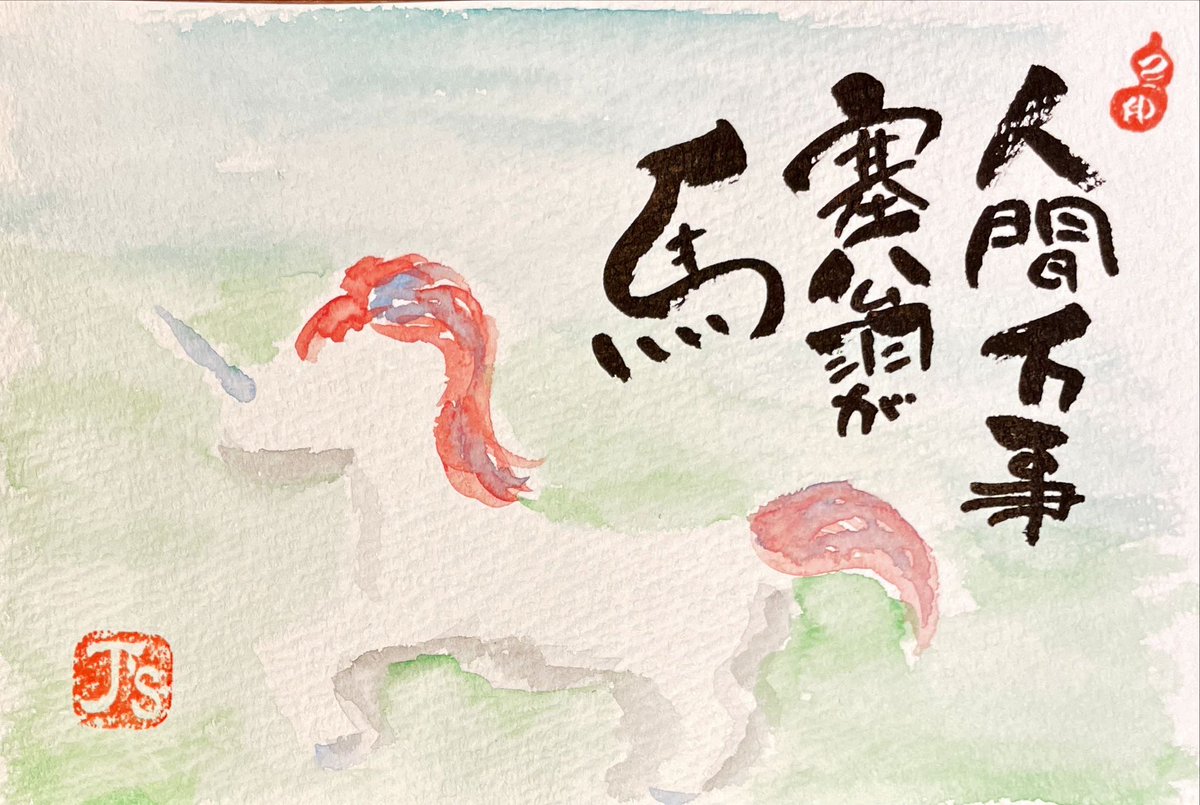 人間万事
塞翁が
馬
J's